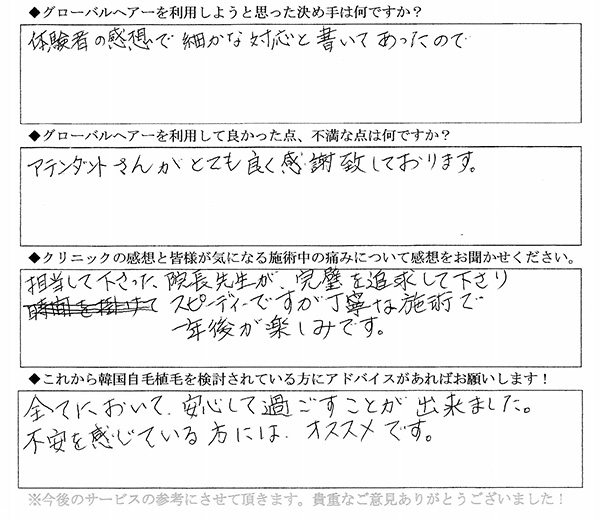 ◆グローバルヘアーを利用しようと思った決め手は何ですか？
体験者の感想で細かな対応と書いてあったので
◆グローバルヘアーを利用して良かった点、不満な点は何ですか？
アテンダントさんがとても良く感謝致しております。
◆クリニックの感想と皆様が気になる施術中の痛みについて感想をお聞かせください。
担当して下さった、院長先生が、完璧を追求して下さり
時間を掛けて スピーディーですが丁寧な施術で
一年後が楽しみです。
◆これから韓国自毛植毛を検討されている方にアドバイスがあればお願いします！
全てにおいて、安心して過ごすことが出来ました。
不安を感じている方には、オススメです。
※今後のサービスの参考にさせて頂きます。貴重なご意見ありがとうございました！